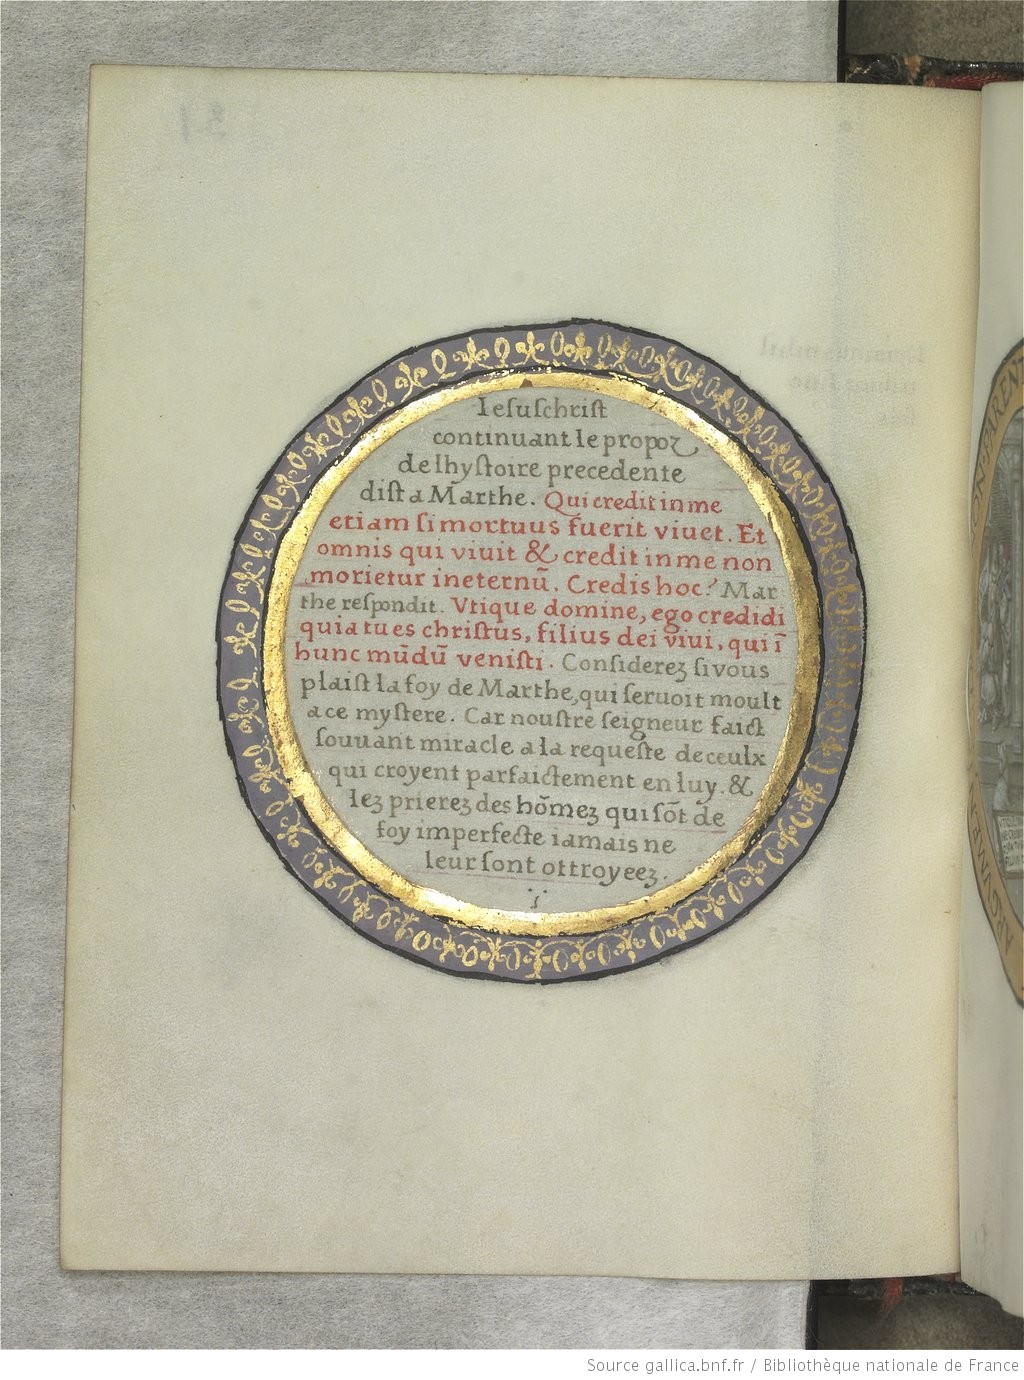 Iesuschrist
continuant le propoz
de lhystoire precedente
dist a Marthe. Qui credit in me
etiam si mortuus fuerit viuet. Et
omnis qui viuit & credit in me non
morietur in eternū. Credis hoc? Mar
the respondit. Vtique domine, ego credidi
quia tu es christus, filius dei viui, qui ī
hunc mūdū venisti. Considerez si vous
plaist la foy de Marthe, qui seruoit moult
a ce mystere. Car noustre seigneur faict
souuant miracle a la requeste de ceulx
qui croyent parfaictement en luy. &
lez prierez des hōmez qui sōt de
foy imperfecte iamais ne
leur sont ottroyeez.
ARGVM
PARENT
Source gallica.bnf.fr / Bibliothèque nationale de France